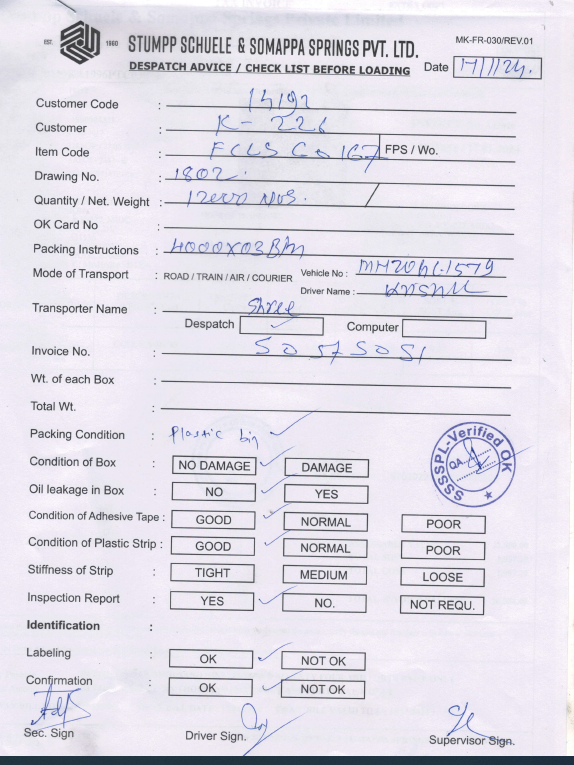 EST. 1960 STUMPP SCHUELE & SOMAPPA SPRINGS PVT. LTD. MK-FR-030/REV.01
DESPATCH ADVICE / CHECK LIST BEFORE LOADING Date
Customer Code : 14192
Customer : K-226
Item Code : FPS / Wo.
Drawing No. : 1802.
Quantity / Net. Weight : 12000 NOS. /
OK Card No :
Packing Instructions : 4000X03Bin
Mode of Transport : ROAD / TRAIN / AIR / COURIER Vehicle No :
Driver Name :
Transporter Name : Shree
Despatch ✓ Computer
Invoice No. :
Wt. of each Box :
Total Wt. :
Packing Condition : Plastic bin ✓
Condition of Box : NO DAMAGE ✓ DAMAGE
Oil leakage in Box : NO ✓ YES
Condition of Adhesive Tape : GOOD ✓ NORMAL POOR
Condition of Plastic Strip : GOOD ✓ NORMAL POOR
Stiffness of Strip : TIGHT MEDIUM LOOSE
Inspection Report : YES ✓ NO. NOT REQU.
Identification :
Labeling : OK ✓ NOT OK
Confirmation : OK ✓ NOT OK
Sec. Sign Driver Sign. Supervisor Sign.
SSSSPL-Verified OK
QA